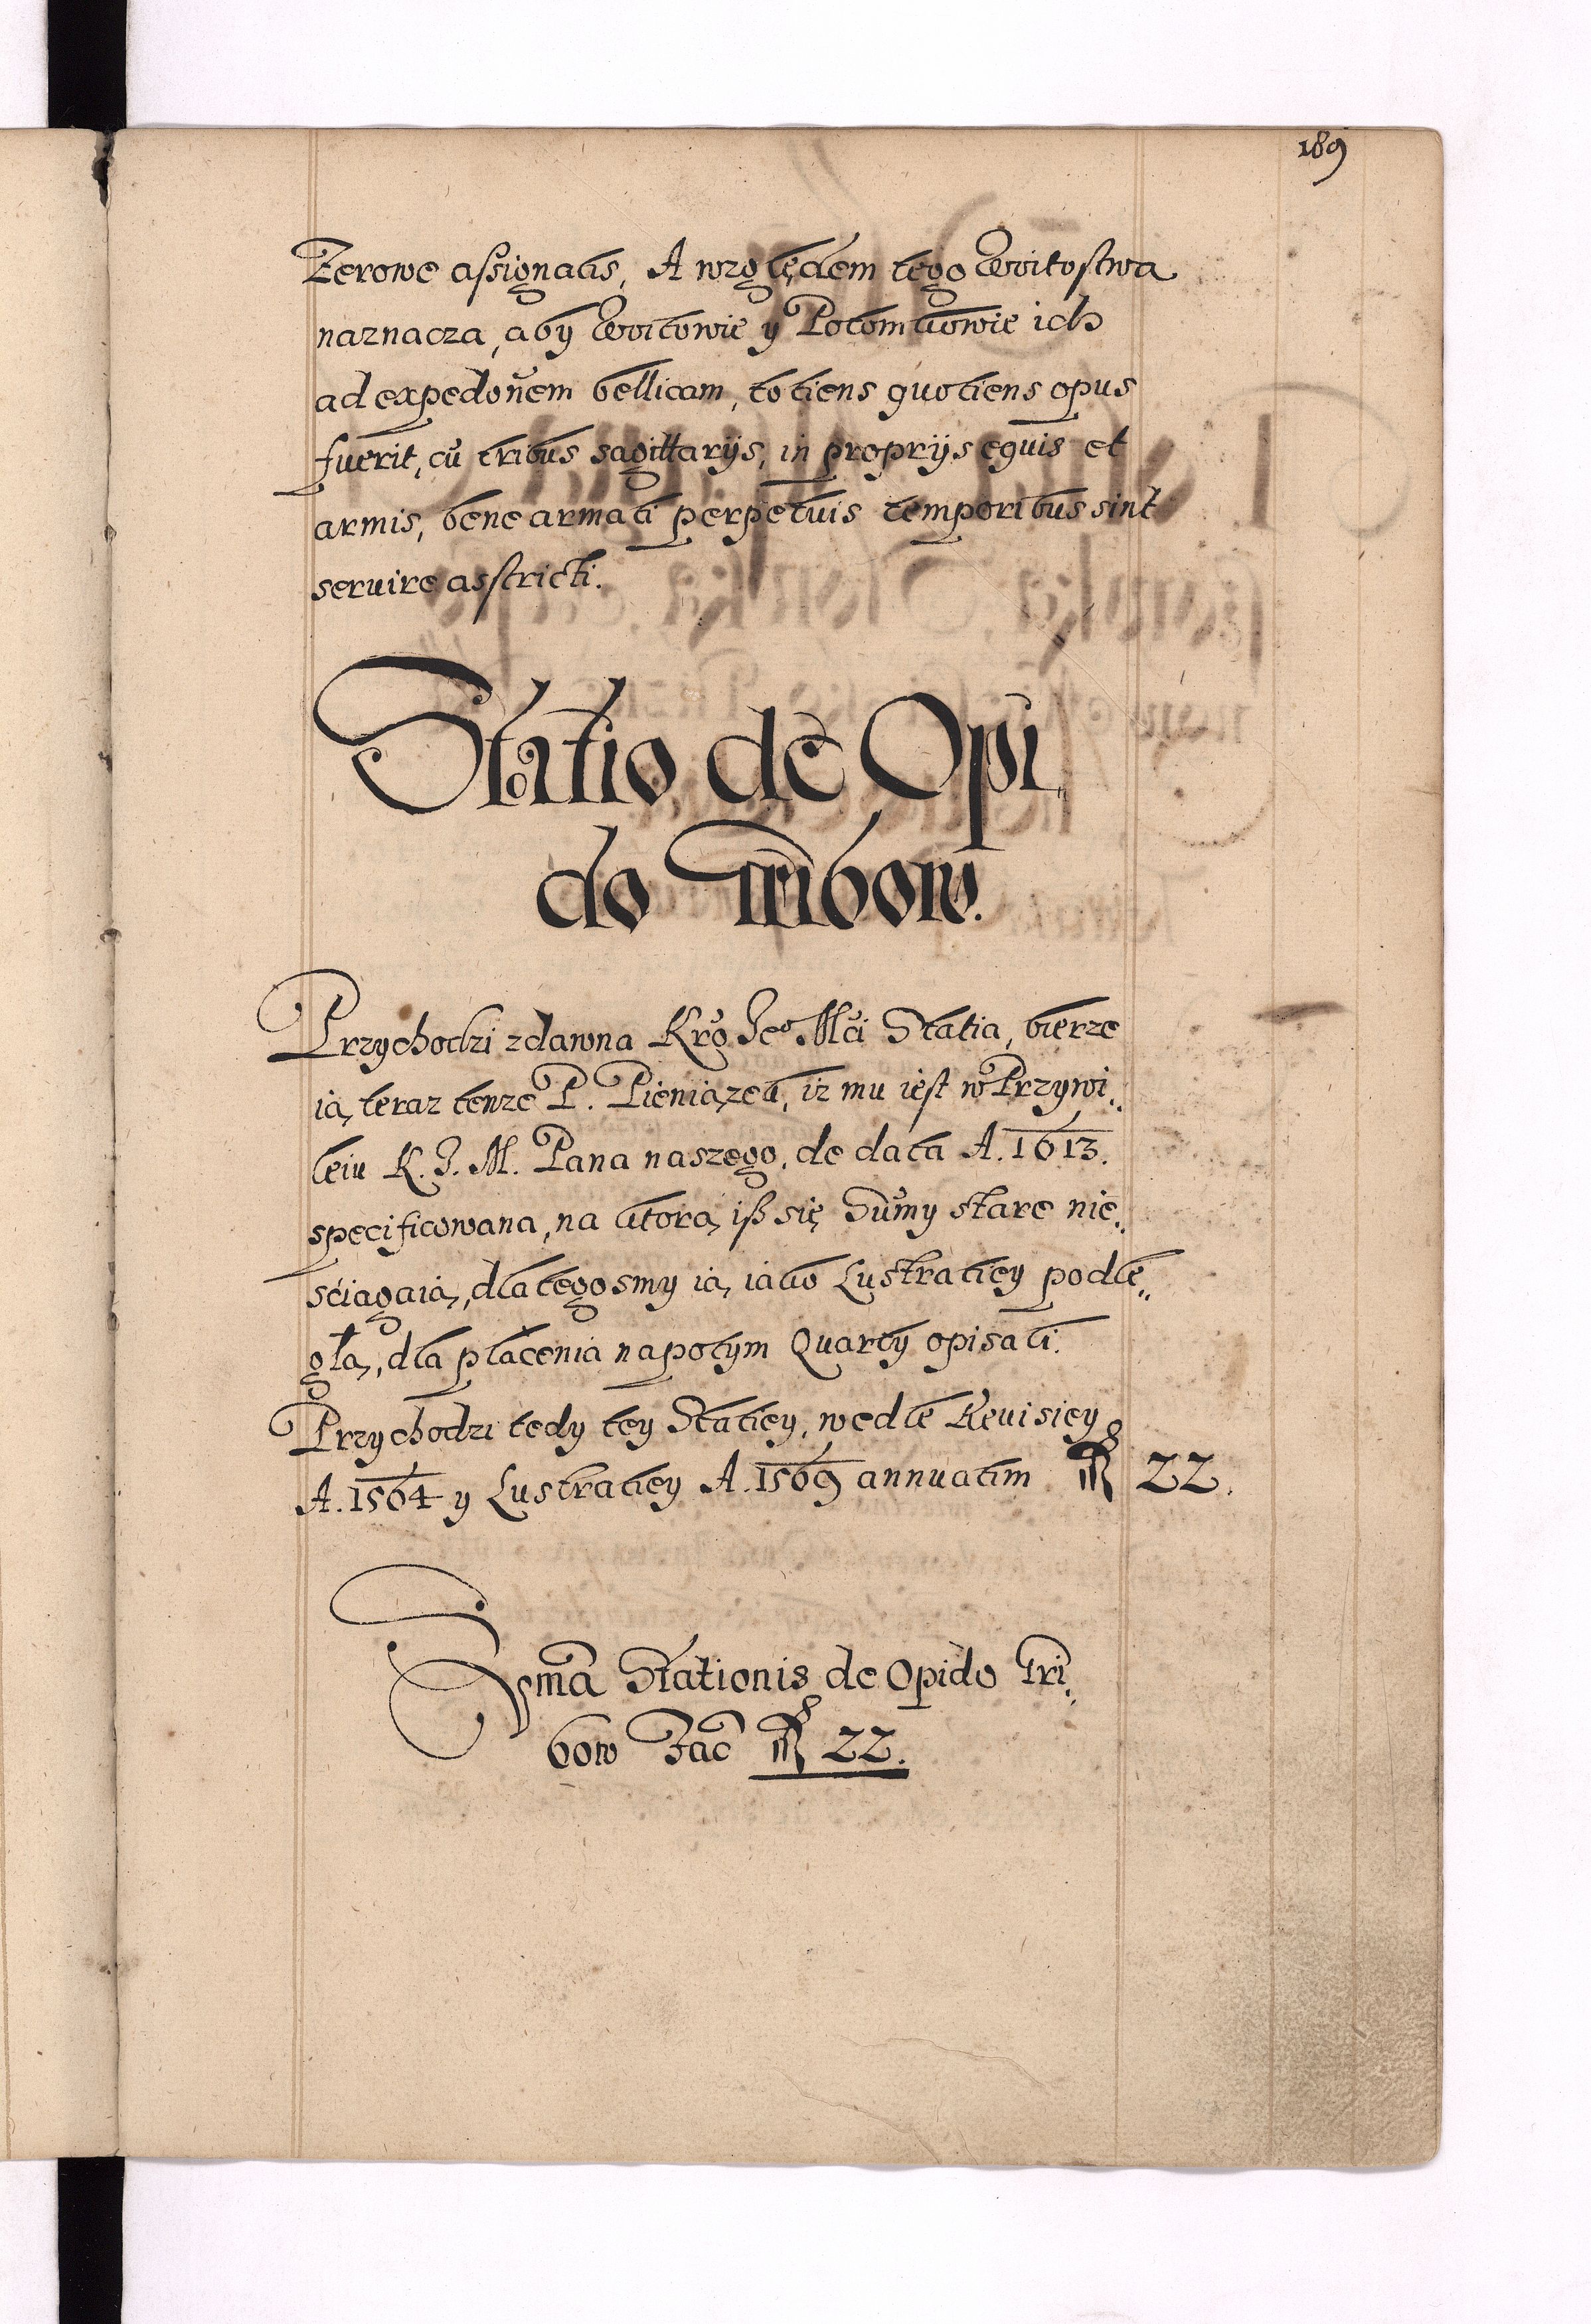 189
Zerowe assignatis, A względem tego Woitostwa
naznacza, aby Woitowie y Potomkowie ich
ad expedoñem bellicam, totiens quotiens opus
fuerit, cũ tribus sagittarijs, in proprijs equis et
armis, bene armati perpetuis temporibus sint
seruire asstricti.
Statio de Opi„
do Tribow.
Przychodzi zdawna Kro Jeo Mci Statia, bierze
ią, teraz tenze P. Pieniązek, iz mu iest w Przywi„
leiu K. J. M. Pana naszego, de data A. 1613.
specificowana, na ktorą iß się Sumy stare nie„
ściągaią, dla tegosmy ią, iako Lustratiey podle„
głą, dla płacenia napotym Quarty opisali.
Przychodzi tedy tey Statiey, wedle Reuisiey
A. 1564 y Lustratiey A. 1569 annuatim 22.
Sma Stationis de Opido Tri„
bow Fac 22.